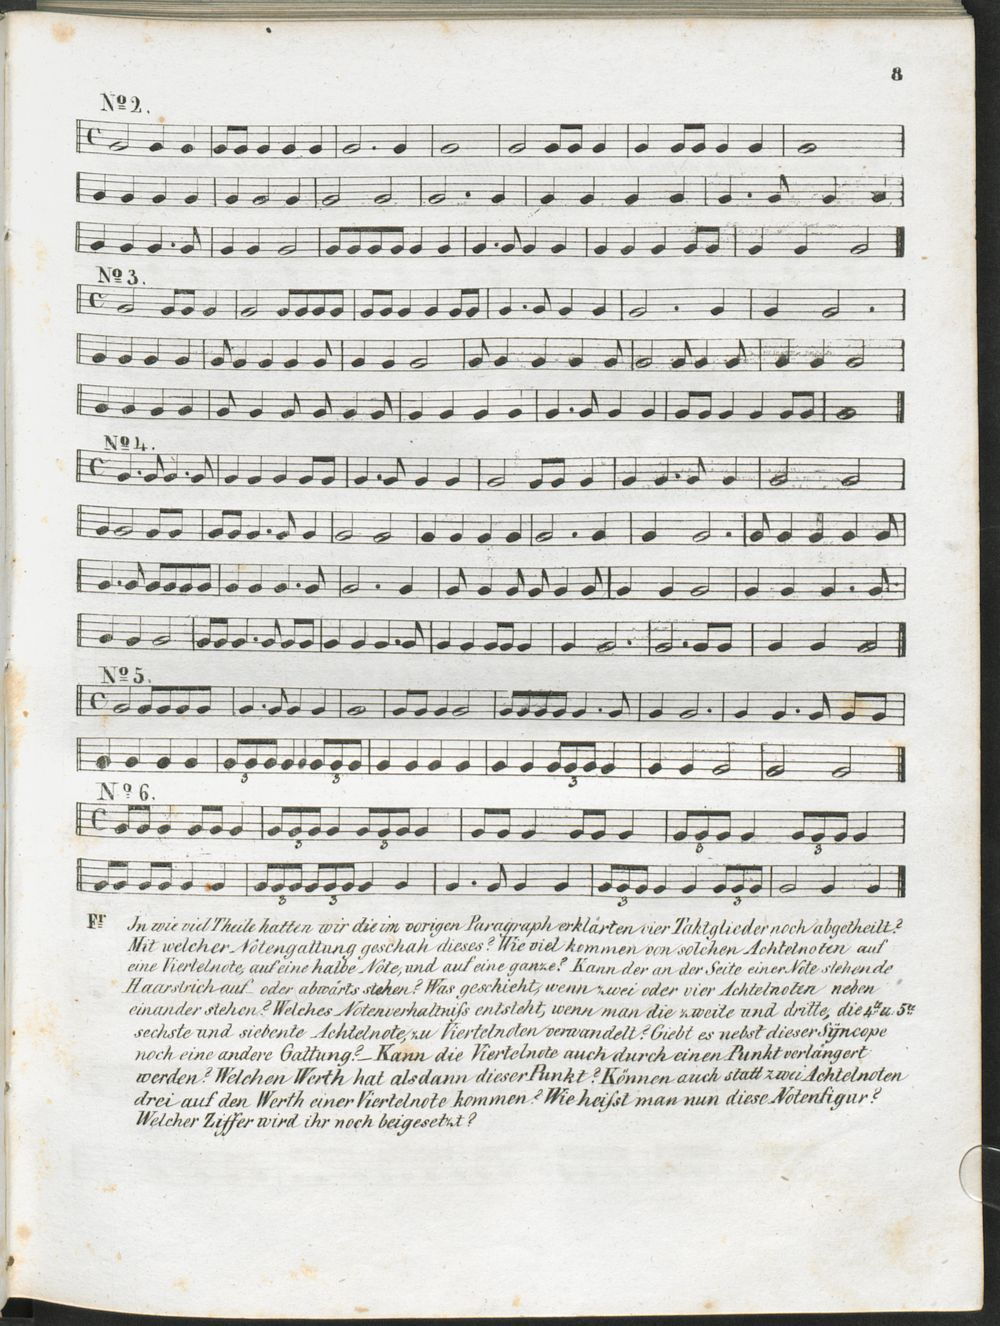 8
Nº 2.
Nº 3.
Nº 4.
Nº 5.
3 3 3
Nº 6.
3 3 3 3
3 3 3 3
Fr In wie viel Theile hatten wir die im vorigen Paragraph erklärten vier Taktglieder noch abgetheilt?
Mit welcher Notengattung geschah dieses? Wie viel kommen von solchen Achtelnoten auf
eine Viertelnote, auf eine halbe Note, und auf eine ganze? Kann der an der Seite einer Note stehende
Haarstrich auf- oder abwärts stehen? Was geschieht, wenn zwei oder vier Achtelnoten neben
einander stehen? Welches Notenverhaltniſs entsteht, wenn man die zweite und dritte, die 4te u. 5te
sechste und siebente Achtelnote, zu Viertelnoten verwandelt? Giebt es nebst dieser Syncope
noch eine andere Gattung?_ Kann die Viertelnote auch durch einen Punkt verlängert
werden? Welchen Werth hat alsdann dieser Punkt? Können auch statt zwei Achtelnoten
drei auf den Werth einer Viertelnote kommen? Wie heiſst man nun diese Notenfigur?
Welcher Ziffer wird ihr noch beigesetzt?